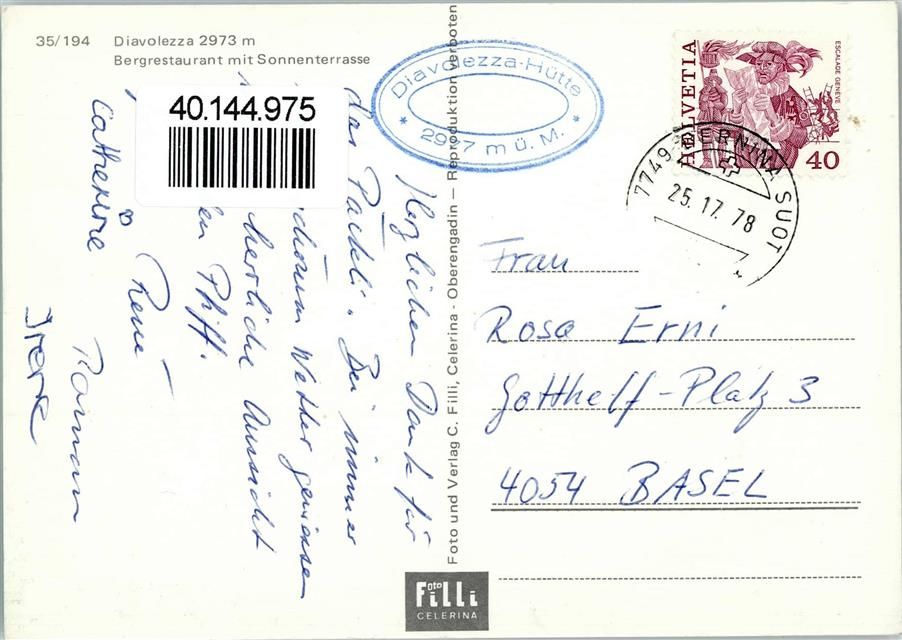 35/194 Diavolezza 2973 m
Bergrestaurant mit Sonnenterrasse
40.144.975
Diavolezza-Hütte
* 2977 m ü. M. *
HELVETIA
ESCALADE GENÈVE
40
7749 BERNINA SUOT
25.17.78
Herzlichen Dank für
das Päckli. Bei immer
Wetter geniessen
herrliche Aussicht
Pfiff.
René
Catherine
Roman
Irene
Foto und Verlag C. Filli, Celerina - Oberengadin — Reproduktion verboten
Frau
Rosa Erni
Gotthelf-Platz 3
4054 BASEL
Foto
Filli
CELERINA